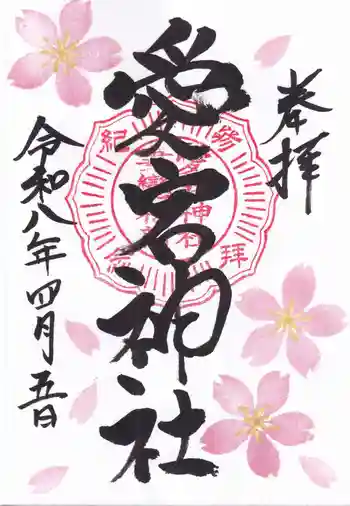 奉拝
愛宕神社
参拝
紀念
令和八年四月五日